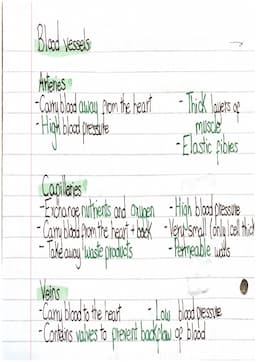 Blood vessels
Arteries
- Carry blood away from the heart
- High blood pressure
- Thick layers of muscle
- Elastic fibres
Capillaries
- Exchange nutrients and oxygen
- Carry blood from the heart + back
- Take away waste products
- High blood pressure
- Very small (only 1 cell thick)
- Permeable walls
Veins
- Carry blood to the heart
- Low blood pressure
- Contains valves to prevent backflow of blood